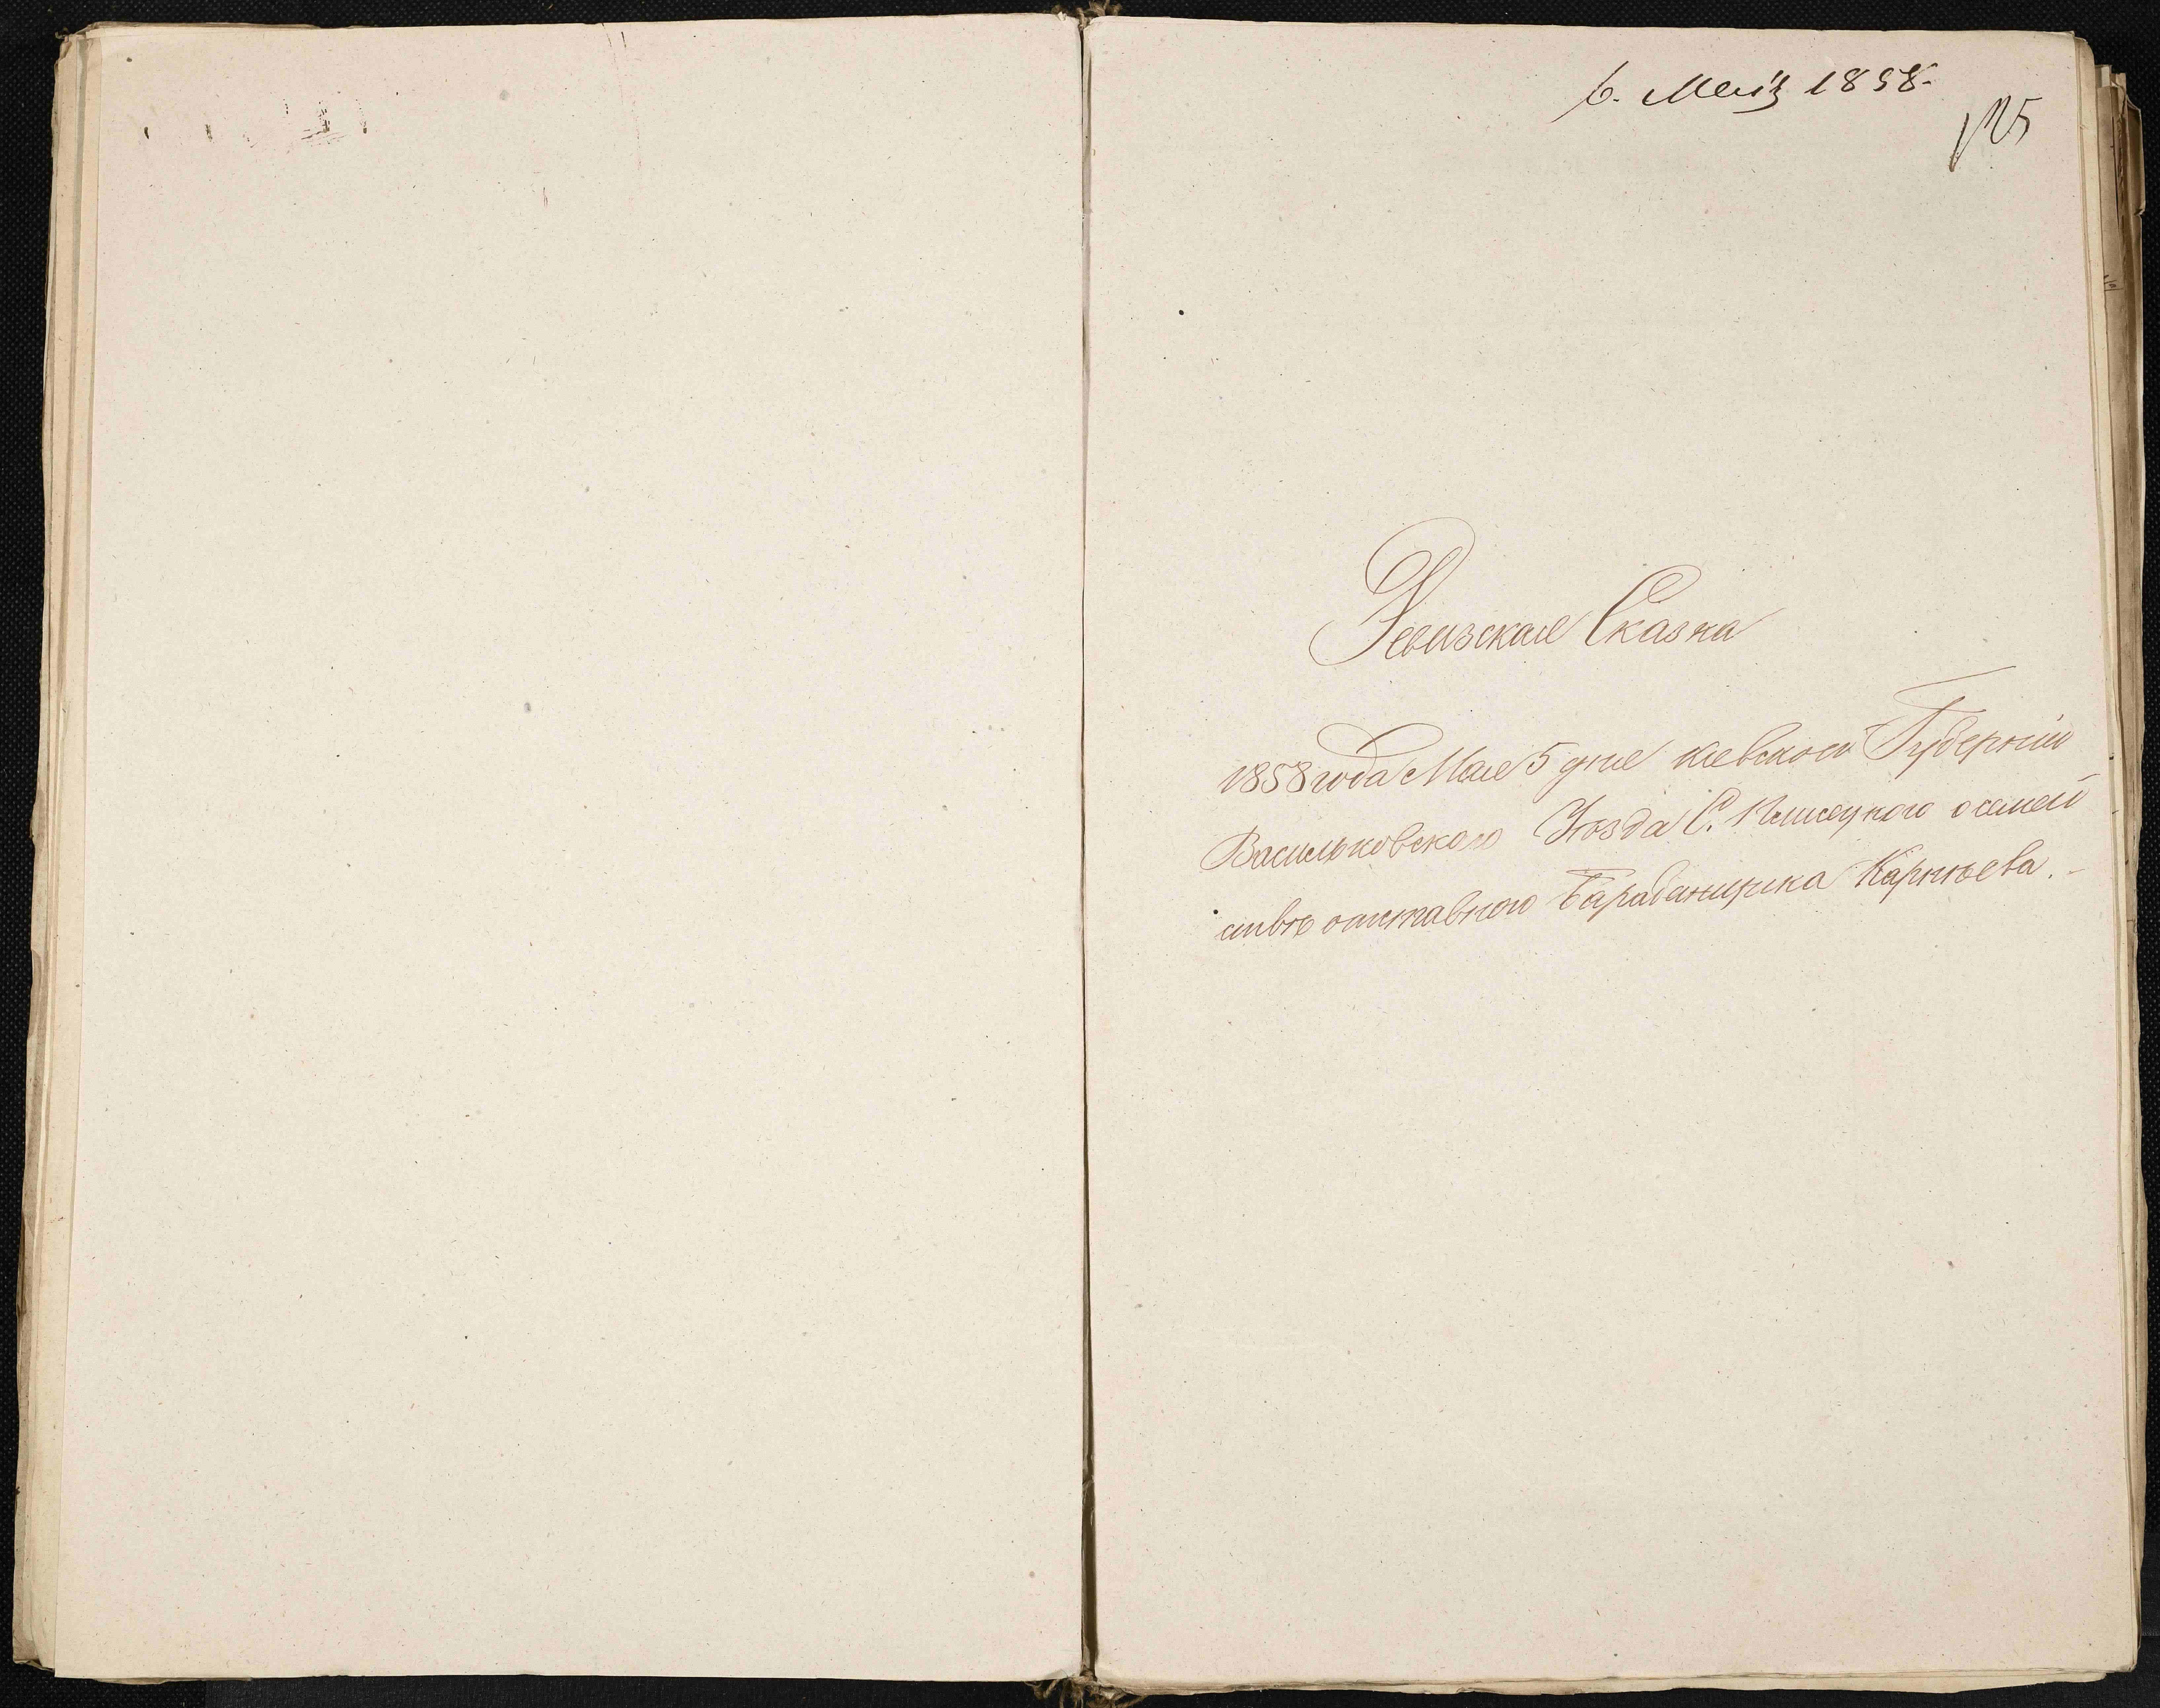 6. Маія 1858.
125
Ревизская Сказка
1858 года Мая 5 дня киевской Губерніи
Васильковского Уѣзда С. о семей
ствѣ отставного Барабанщика Карнѣева.